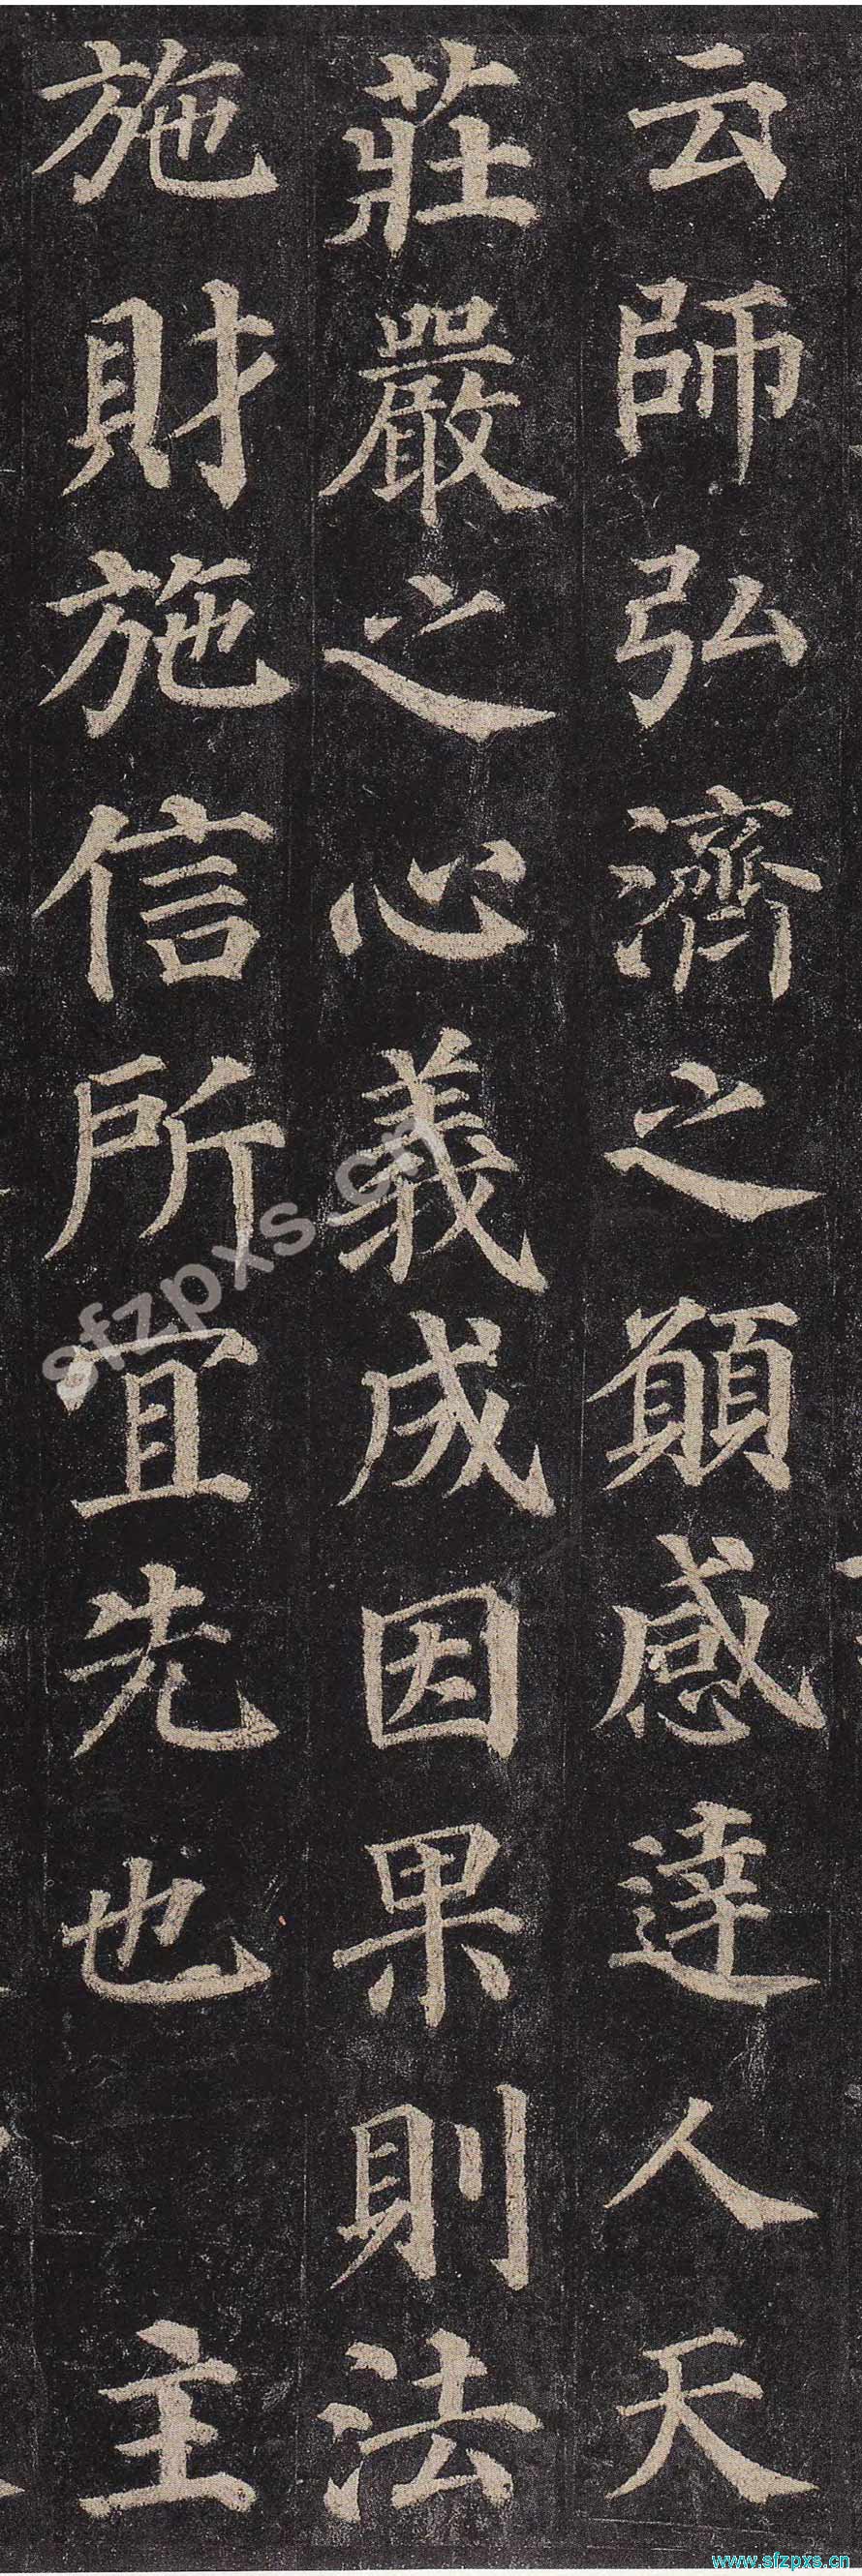 云師弘濟之願感達人天
莊嚴之心義成因果則法
施財施信所宜先也 主
sfzpxs.cn
www.sfzpxs.cn